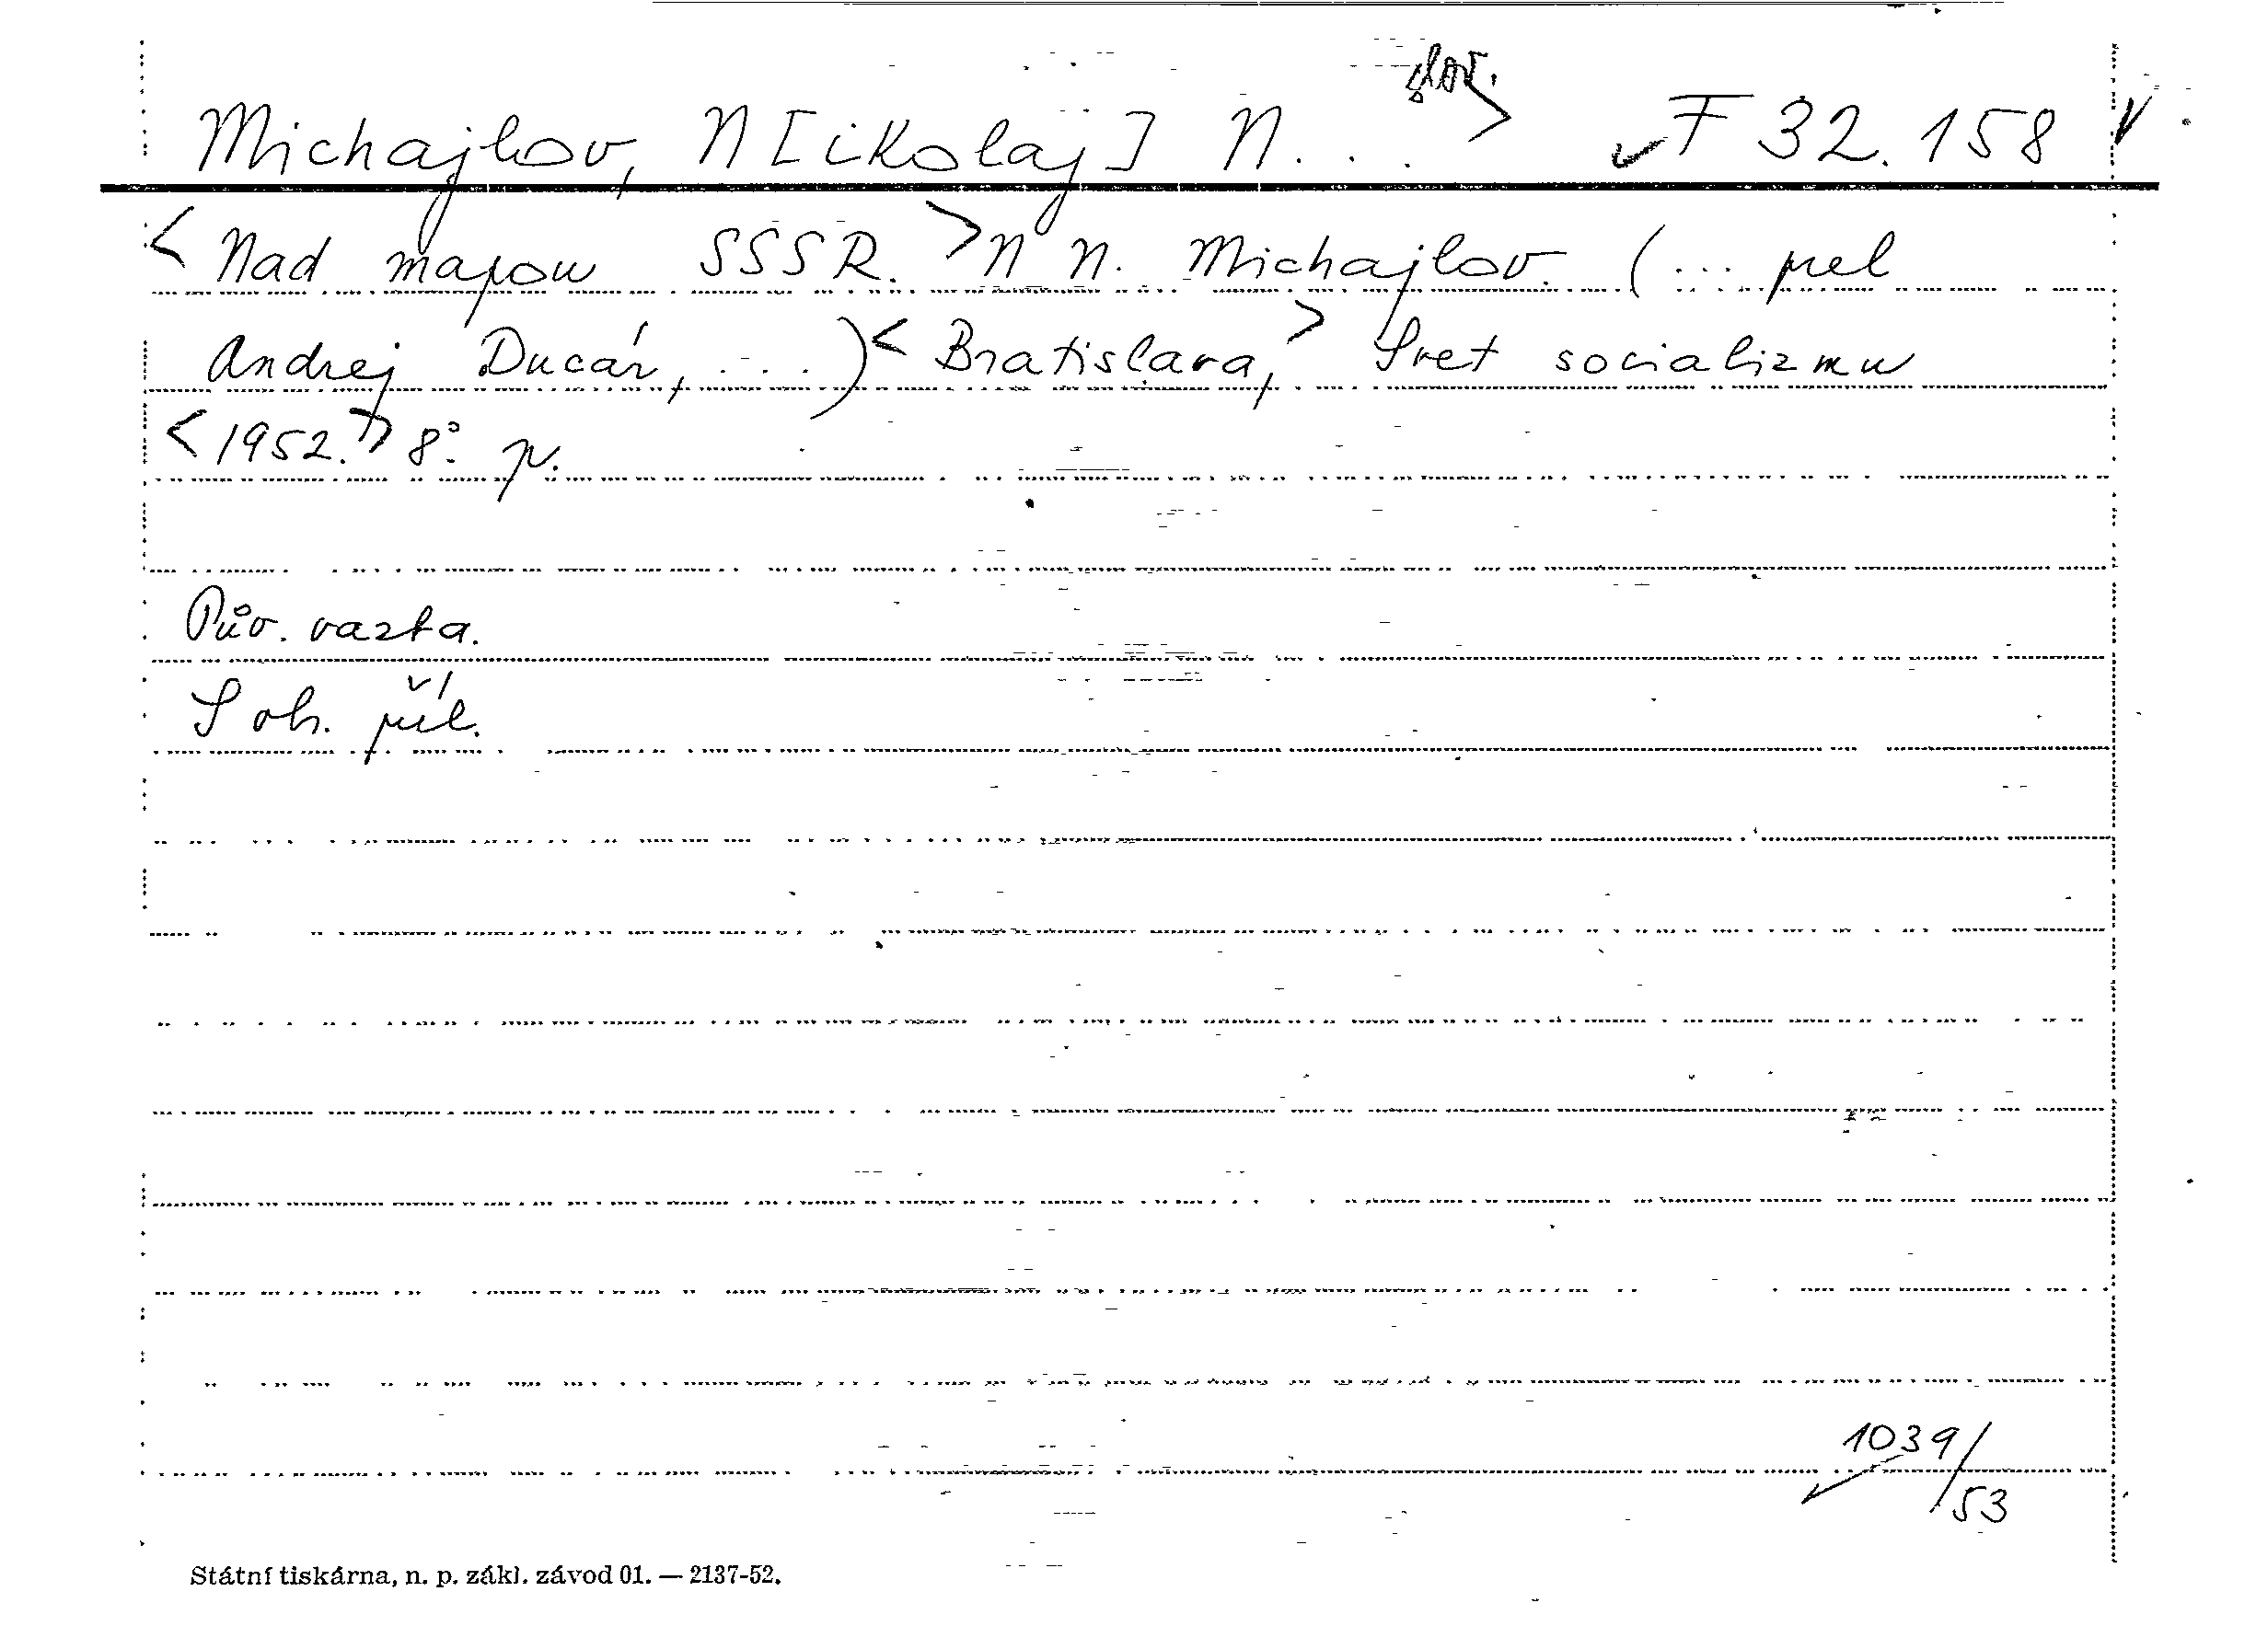 slov.
Michajlov, N[ikolaj] N... > F 32.158
<Nad mapou SSSR.> N N. Michajlov. (... prel
Andrej Ducár, ...) < Bratislava,> Svet socializmu
<1952.> 8°. p.
Pův. vazba.
S ob. příl.
1039/
53
Státní tiskárna, n. p. zákl. závod 01. — 2137-52.